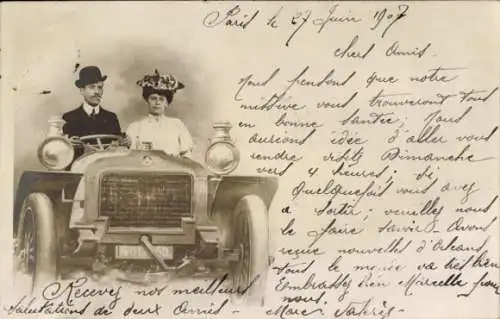 Paris le 27 Juin 1907
chers Amis.
Nous pensons que notre
missive vous trouveront tous
en bonne santée; Nous
aurions idée d'aller vous
rendre visite Dimanche
vers 4 heures; si
Quelquefois vous avez
à sortir; veuillez nous
le faire savoir. Avons
reçue nouvelles d'
Tout le monde va très bien
Embrassez bien Marcelle pour
nous.
Marc
Recevez nos meilleurs
Salutations de deux Amis.